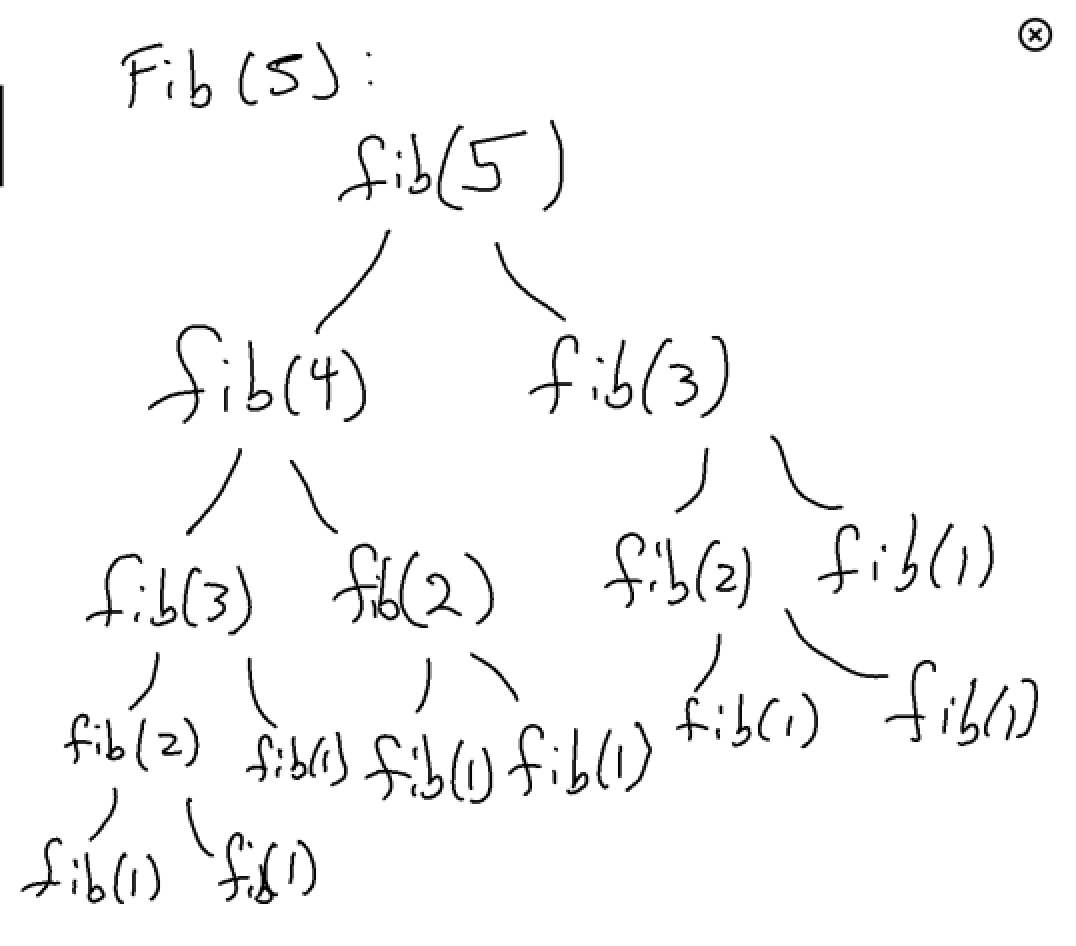 Fib(5):
fib(5)
fib(4) fib(3)
fib(3) fib(2) fib(2) fib(1)
fib(2) fib(1) fib(1) fib(1) fib(1) fib(1)
fib(1) fib(1)